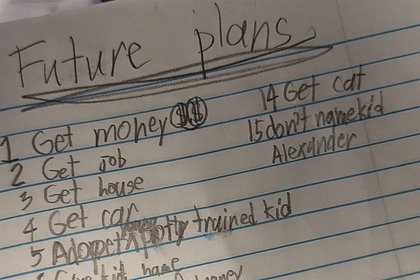 Future plans
1 Get money $$
2 Get Job
3 Get house
4 Get car
5 Adopet potty trained kid
name
14 Get cat
15 don't name kid
Alexander